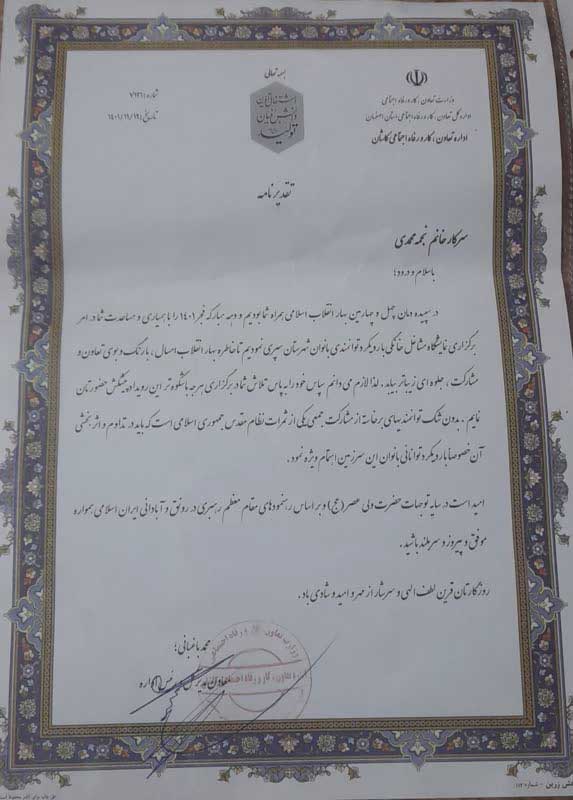 بسمه تعالی
وزارت تعاون، کار و رفاه اجتماعی
اداره کل تعاون، کار و رفاه اجتماعی استان اصفهان
اداره تعاون، کار و رفاه اجتماعی کاشان
شماره: ۷۹۳۶
تاریخ: ۱۴۰۱/۱۱/۱۹
تولید
دانش بنیان
اشتغال آفرین
تقدیرنامه
سرکار خانم نجمه محمدی
باسلام و درود؛
در سپیده دمان چهل و چهارمین بهار انقلاب اسلامی همراه شما بودیم و دهه مبارکه فجر ۱۴۰۱ را با همیاری و مساعدت شما در امر
برگزاری نمایشگاه مشاغل خانگی با رویکرد توانمندی بانوان شهرستان سپری نمودیم تا خاطره بهار انقلاب امسال، با رنگ و بوی تعاون و
مشارکت، جلوه ای زیباتر بیابد. لذا لازم می دانم سپاس خود را به پاس تلاش شما در برگزاری هرچه باشکوه تر این رویداد، پیشکش حضورتان
نمایم. بدون شک توانمندیهای برخاسته از مشارکت جمعی یکی از ثمرات نظام مقدس جمهوری اسلامی است که باید در تداوم و اثربخشی
آن خصوصا با رویکرد توانایی بانوان این سرزمین اهتمام ویژه نمود.
امید است در سایه توجهات حضرت ولی عصر (عج) و بر اساس رهنمودهای مقام معظم رهبری در رونق و آبادانی ایران اسلامی همواره
موفق و پیروز و سربلند باشید.
روزگارتان قرین لطف الهی و سرشار از مهر و امید و شادی باد.
محمد باغبانی؛
معاون مدیر کل و رئیس اداره